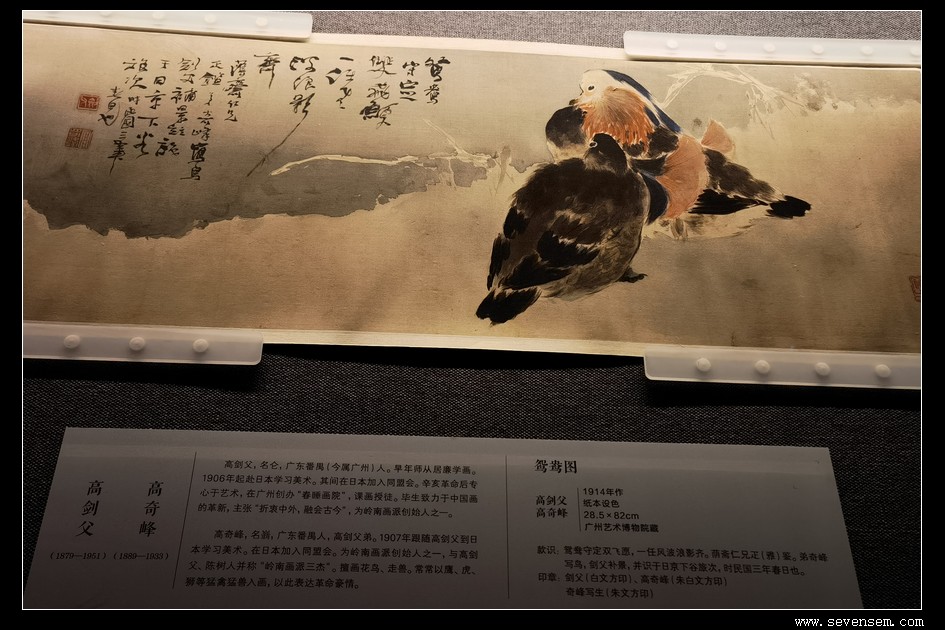 鸳鸯
守定
双飞愿
一任
风波
浪影
齐
荫斋仁兄
正鉴之奇峰写鸟
剑父补景并识
于日京下谷
旅次时民国三年
春日也
高奇峰
(1889—1933)
高剑父
(1879—1951)
高剑父，名仑，广东番禺（今属广州）人。早年师从居廉学画。
1906年起赴日本学习美术。其间在日本加入同盟会。辛亥革命后专
心于艺术，在广州创办“春睡画院”，课画授徒。毕生致力于中国画
的革新，主张“折衷中外，融会古今”，为岭南画派创始人之一。
高奇峰，名嵡，广东番禺人，高剑父弟。1907年跟随高剑父到日
本学习美术。在日本加入同盟会。为岭南画派创始人之一，与高剑
父、陈树人并称“岭南画派三杰”。擅画花鸟、走兽。常常以鹰、虎、
狮等猛禽猛兽入画，以此表达革命豪情。
鸳鸯图
高剑父
高奇峰
1914年作
纸本设色
28.5×82cm
广州艺术博物院藏
款识：鸳鸯守定双飞愿，一任风波浪影齐。荫斋仁兄正（雅）鉴。弟奇峰
写鸟，剑父补景，并识于日京下谷旅次，时民国三年春日也。
印章：剑父（白文方印）、高奇峰（朱白文方印）
奇峰写生（朱文方印）
www.sevensem.com